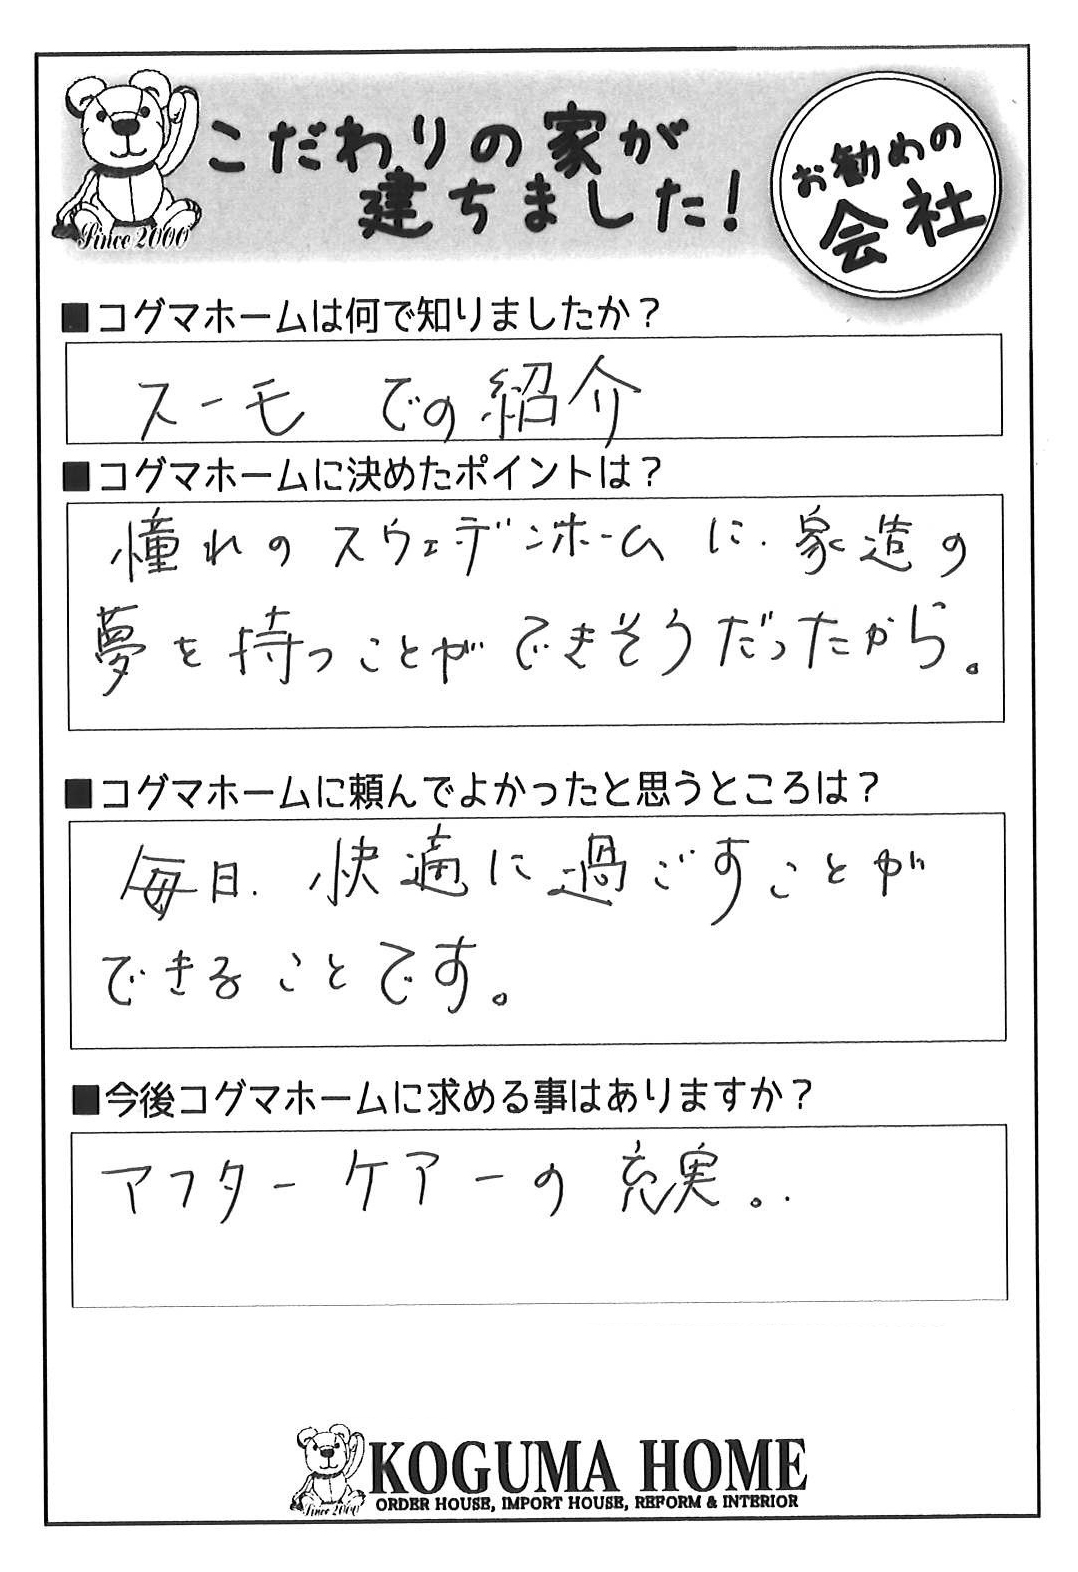 こだわりの家が
建ちました！
お勧めの
会社
Since 2000
■コグマホームは何で知りましたか？
スーモ での紹介
■コグマホームに決めたポイントは？
憧れのスウェデンホームに、家造の
夢を持つことができそうだったから。
■コグマホームに頼んでよかったと思うところは？
毎日、快適に過ごすことが
できることです。
■今後コグマホームに求める事はありますか？
アフターケアーの充実。
KOGUMA HOME
ORDER HOUSE, IMPORT HOUSE, REFORM & INTERIOR
Since 2000